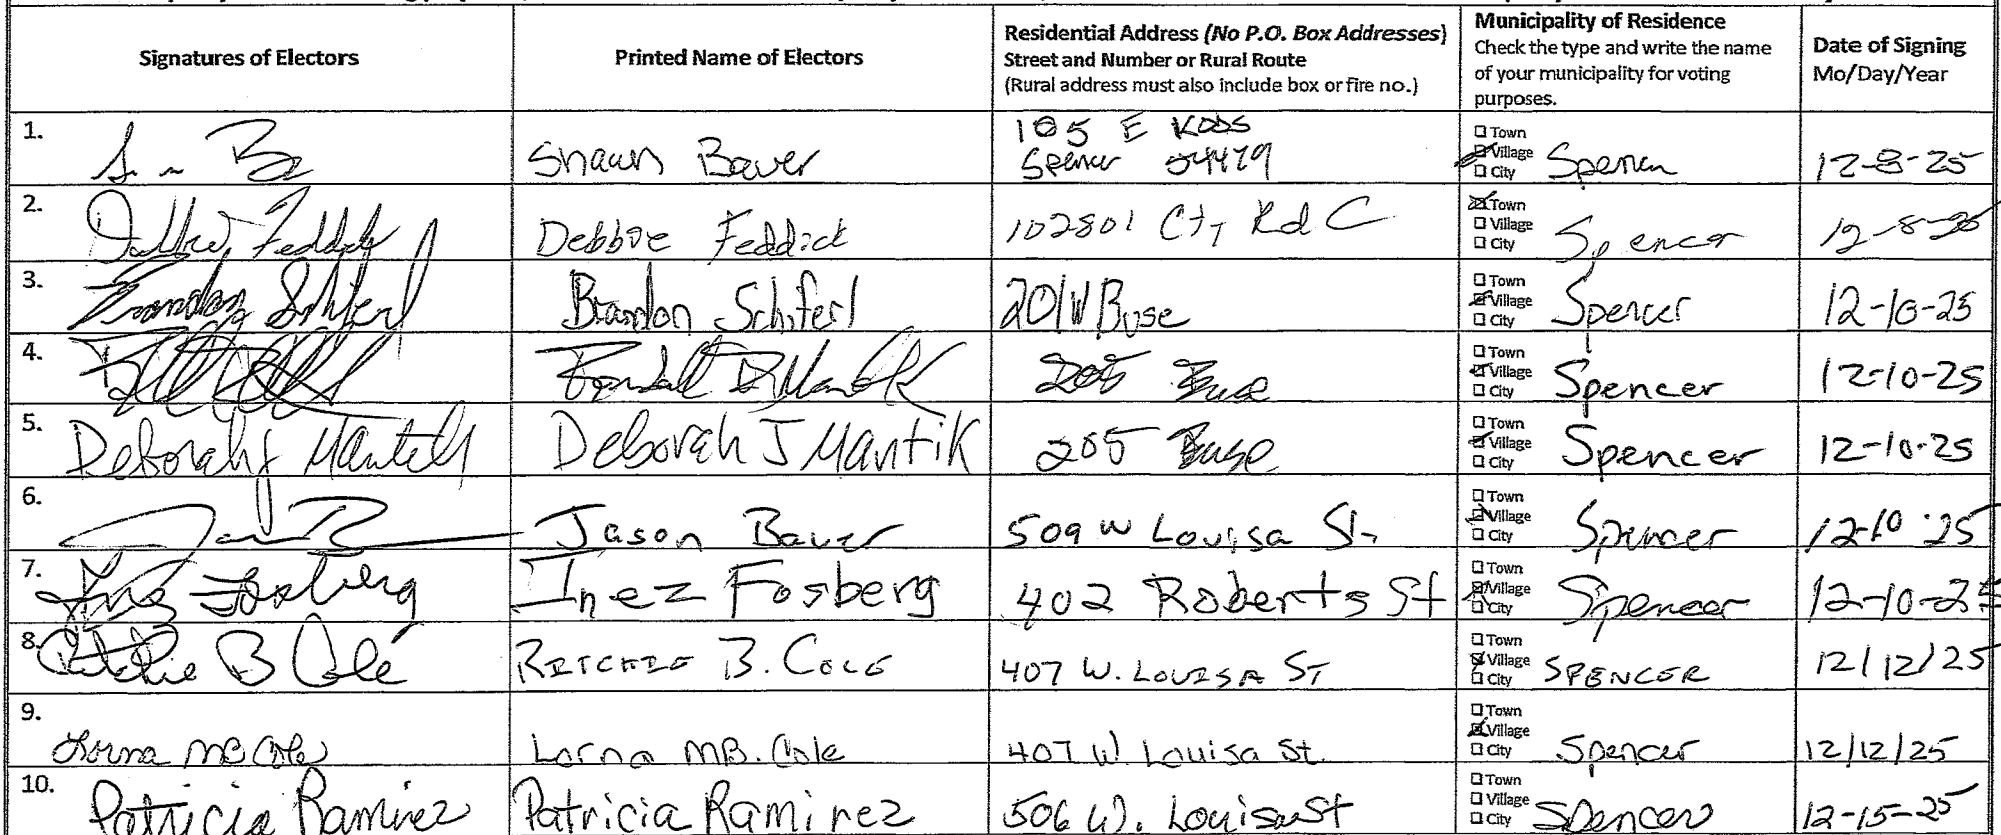 Signatures of Electors
Printed Name of Electors
Residential Address (No P.O. Box Addresses)
Street and Number or Rural Route
(Rural address must also include box or fire no.)
Municipality of Residence
Check the type and write the name
of your municipality for voting
purposes.
Date of Signing
Mo/Day/Year
1.
Shawn Bauer
105 E Kobs
Spencer 54479
Town
Village
City
Spencer
12-8-25
2.
Debbie Feddick
Debbie Feddick
102801 Cty Rd C
Town
Village
City
Spencer
12-8-25
3.
Brandon Schiferl
Brandon Schiferl
201 W Buse
Town
Village
City
Spencer
12-10-25
4.
205 Buse
Town
Village
City
Spencer
12-10-25
5.
Deborah J Mantik
Deborah J Mantik
205 Buse
Town
Village
City
Spencer
12-10-25
6.
Jason Bauer
509 W Louisa St
Town
Village
City
Spencer
12-10-25
7.
Inez Fosberg
Inez Fosberg
402 Roberts St
Town
Village
City
Spencer
12-10-25
8.
Ritchie B Cole
RITCHIE B. COLE
407 W. LOUISA ST
Town
Village
City
SPENCER
12/12/25
9.
Lorna MB Cole
Lorna MB. Cole
407 W. Louisa St.
Town
Village
City
Spencer
12/12/25
10.
Patricia Ramirez
Patricia Ramirez
506 W. Louisa St
Town
Village
City
Spencer
12-15-25